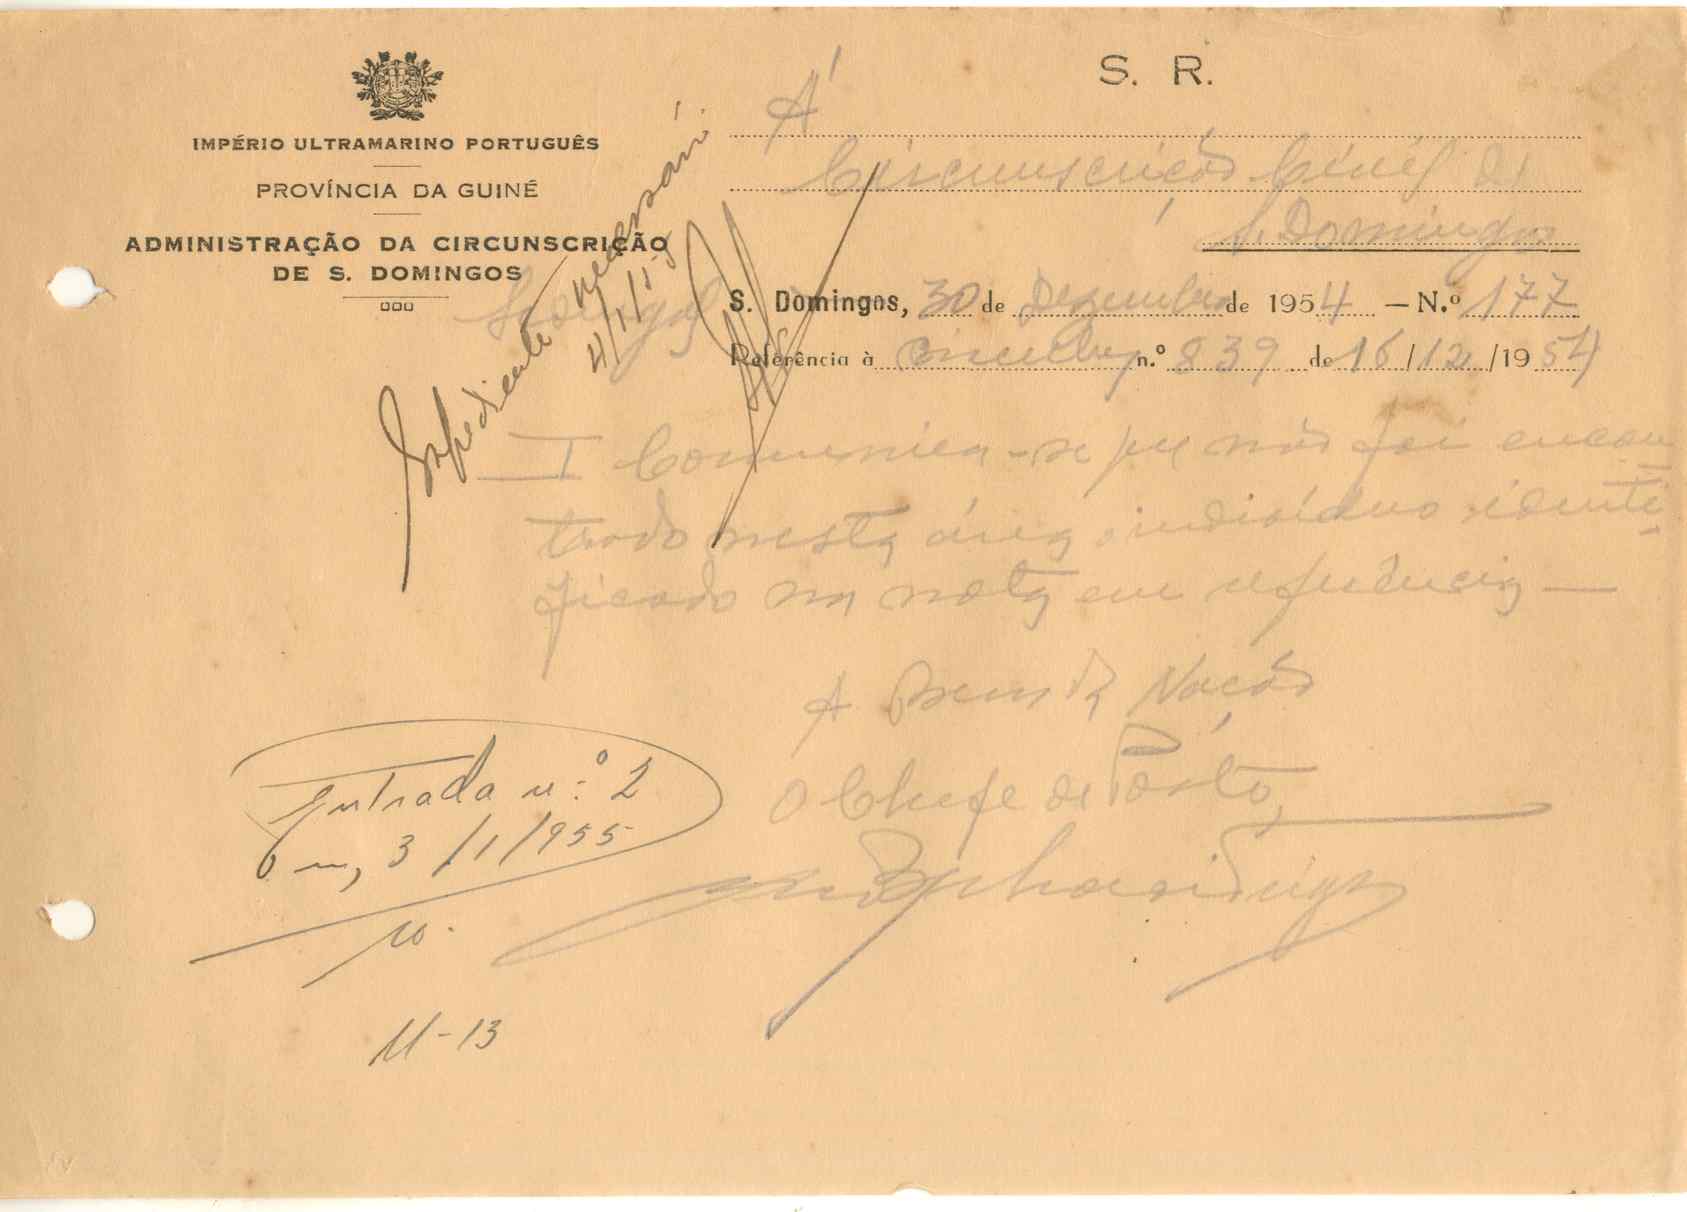 S. R.
IMPÉRIO ULTRAMARINO PORTUGUÊS
PROVÍNCIA DA GUINÉ
ADMINISTRAÇÃO DA CIRCUNSCRIÇÃO
DE S. DOMINGOS
À
Circunscrição Civil de
S. Domingos
S. Domingos, 30 de Dezembro de 1954 — N.º 177
Referência à n.º 839 de 16/12/1954
Expediente necessário
4/1/55
I Comunica-se que não foi encon
trado nesta área o indivíduo identi
ficado na nota em referência —
A Bem da Nação
O Chefe de Pôsto,
Entrada n.º 2
em, 3/1/955
M-13